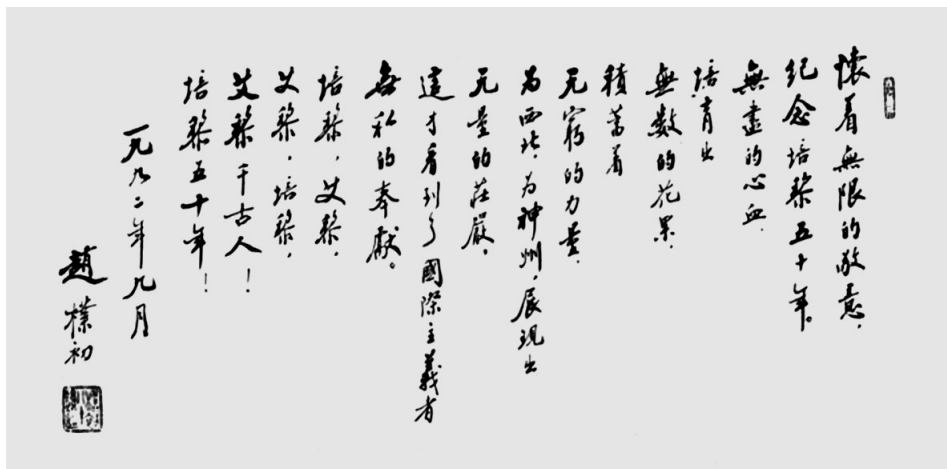 懷着無限的敬意，
紀念培黎五十年。
無盡的心血，
培育出
無數的花果，
積蓄着
无窮的力量，
为西北，为神州，展現出
无量的莊嚴。
這才看到了國際主義者
無私的奉獻。
培黎，艾黎，
艾黎，培黎，
艾黎千古人！
培黎五十年！
一九九二年九月
趙樸初